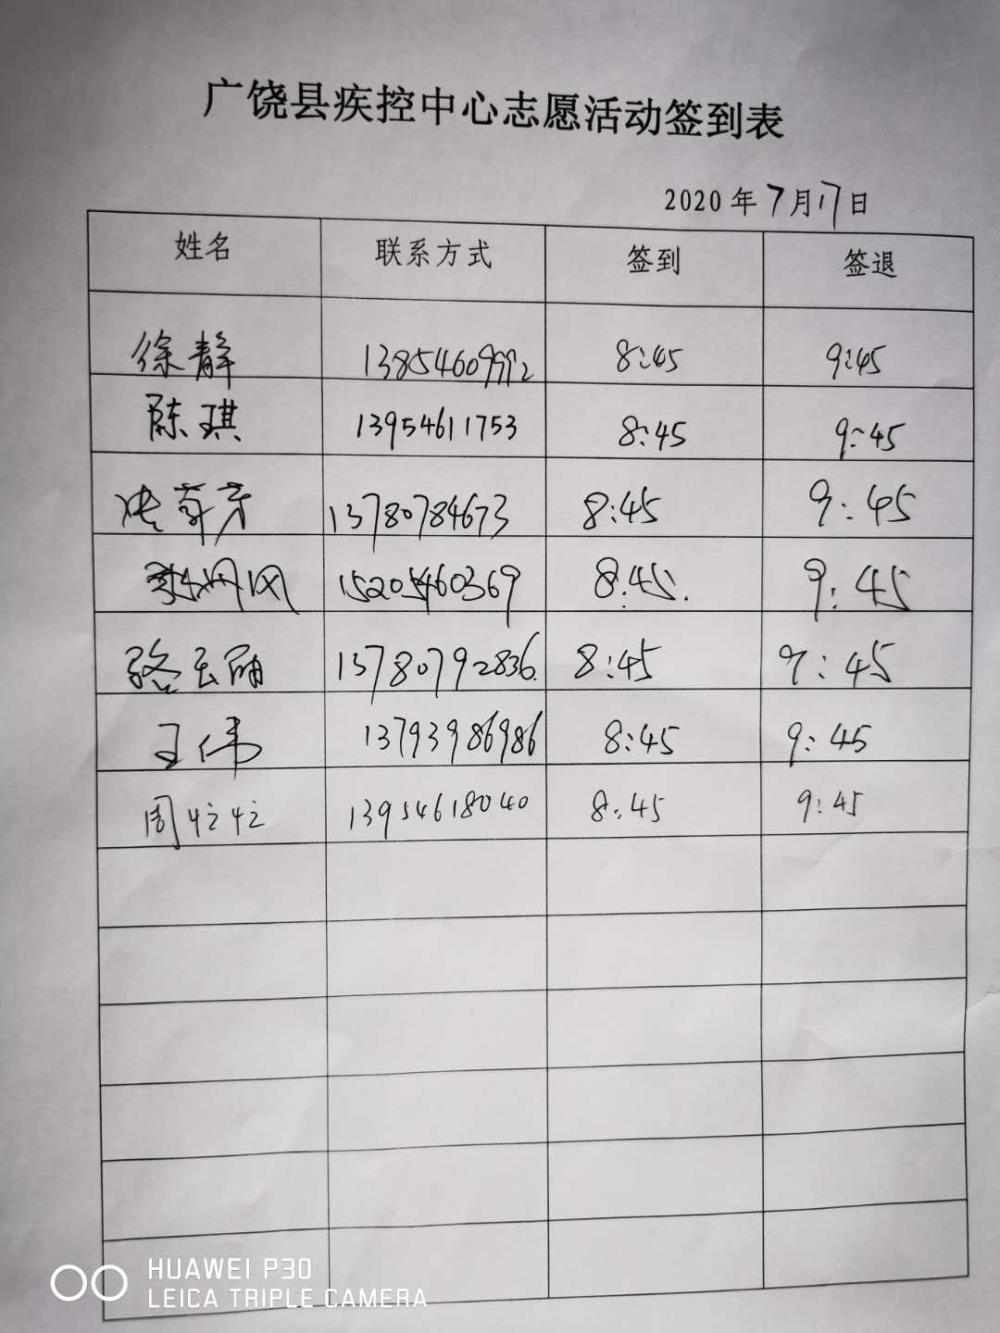 广饶县疾控中心志愿活动签到表
2020年7月17日
姓名 联系方式 签到 签退
徐静 13854609992 8:45 9:45
陈琪 13954611753 8:45 9:45
13780784673 8:45 9:45
15205460369 8:45. 9:45
骆云丽 13780792836. 8:45 9:45
王伟 13793986986 8:45 9:45
周 13954618040 8:45 9:45
HUAWEI P30
LEICA TRIPLE CAMERA